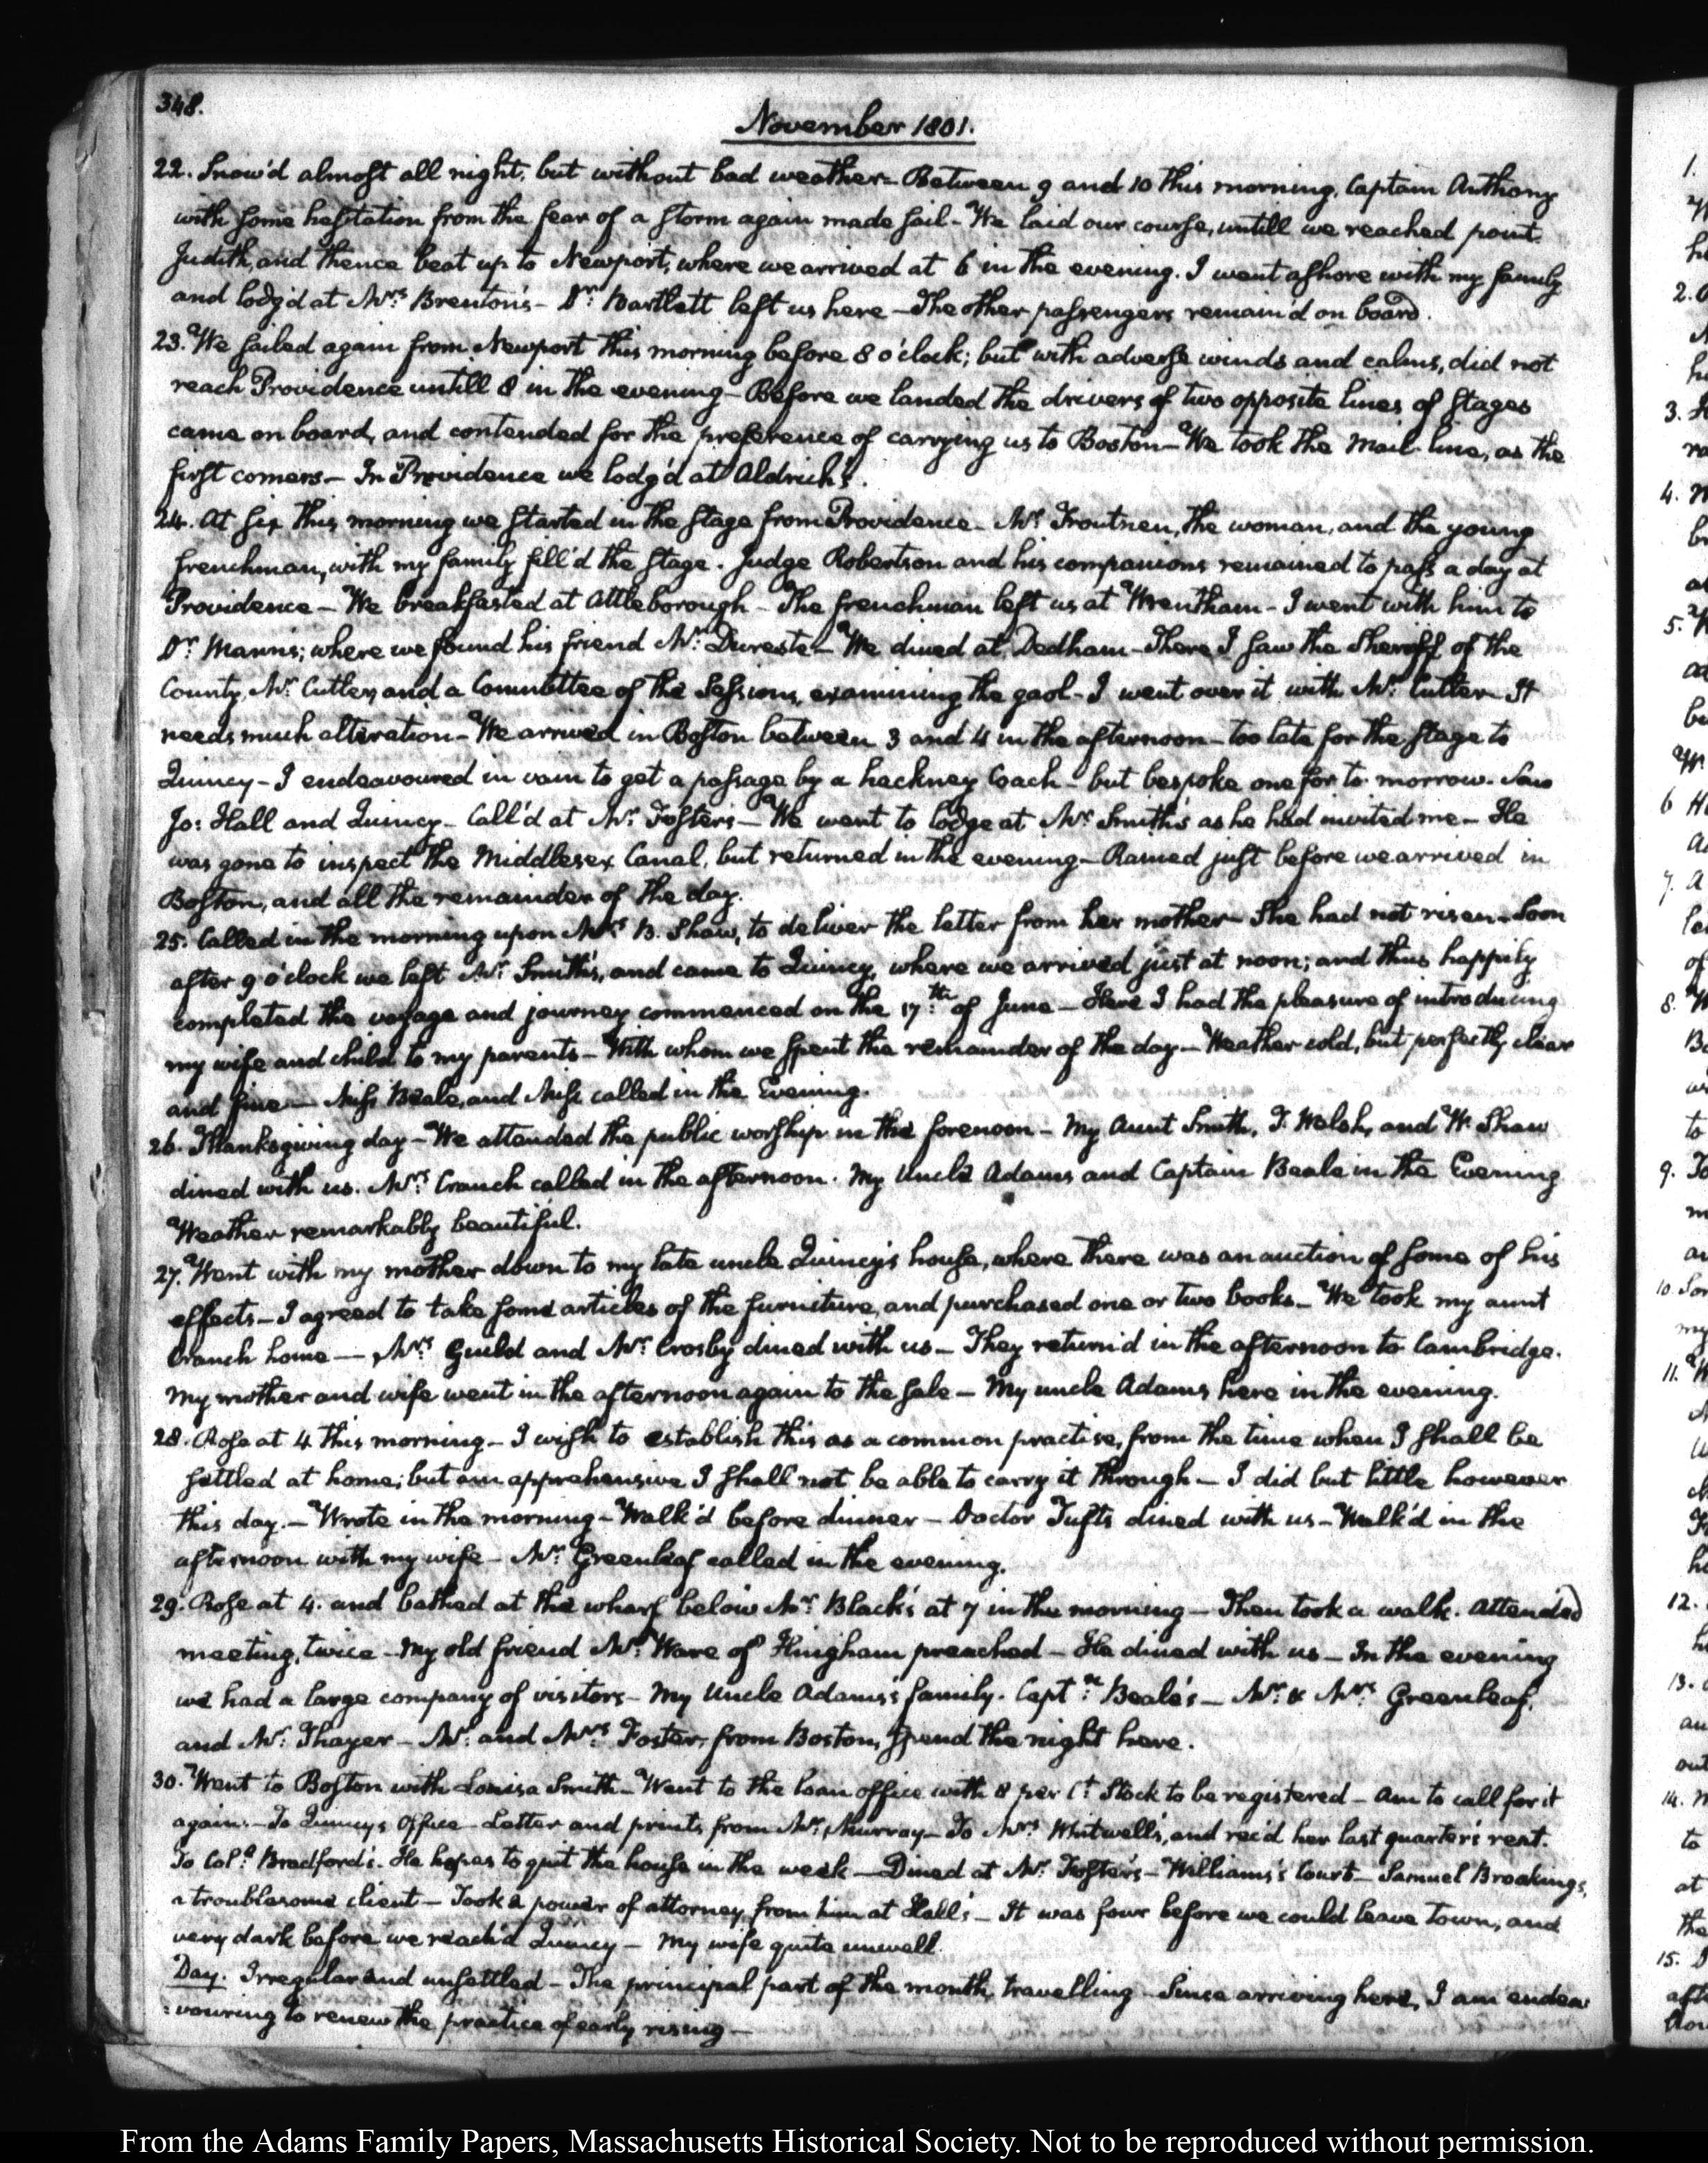 348.
November 1801.
22. Snow'd almost all night, but without bad weather - Between 9 and 10 this morning, Captain Anthony
with some hesitation from the fear of a storm again made sail - We laid our course, untill we reached point
Judith, and thence beat up to Newport, where we arrived at 6 in the evening. I went ashore with my family
and lodg'd at Mrs. Brenton's - Dr. Bartlett left us here - The other passengers remain'd on board.
23. We sailed again from Newport this morning before 8 o'clock; but with adverse winds and calms, did not
reach Providence untill 8 in the evening - Before we landed the drivers of two opposite lines of stages
came on board, and contended for the preference of carrying us to Boston - We took the Mail line, as the
first comers - In Providence we lodg'd at Aldrich's.
24. At six this morning we started in the stage from Providence - Mr. the woman, and the young
frenchman, with my family fill'd the stage. Judge Robertson and his companions remained to pass a day at
Providence - We breakfasted at Attleborough - The frenchman left us at Wrentham - I went with him to
Dr. Manns; where we found his friend Mr. We dined at Dedham - There I saw the Sheriff of the
County, Mr. Cutler, and a Committee of the Sessions, examining the gaol - I went over it with Mr. Cutler - It
needs much alteration - We arrived in Boston between 3 and 4 in the afternoon - too late for the stage to
Quincy - I endeavoured in vain to get a passage by a hackney Coach - but bespoke one for to-morrow. Saw
Jo: Hall and Quincy - Call'd at Mr. Foster's - We went to lodge at Mr. Smith's as he had invited me - He
was gone to inspect the Middlesex Canal, but returned in the evening - Rained just before we arrived in
Boston, and all the remainder of the day.
25. Called in the morning upon Mrs. B. Shaw, to deliver the letter from her mother - She had not risen - Soon
after 9 o'clock we left Mr. Smith's, and came to Quincy, where we arrived just at noon; and thus happily
completed the voyage and journey commenced on the 17.th of June - Here I had the pleasure of introducing
my wife and child to my parents - With whom we spent the remainder of the day - Weather cold, but perfectly clear
and fine - Miss Beale, and Miss called in the Evening.
26. Thanksgiving day - We attended the public worship in the forenoon - My Aunt Smith, T. Welsh, and W. Shaw
dined with us. Mrs. Cranch called in the afternoon. My Uncle Adams and Captain Beale in the Evening
Weather remarkably beautiful.
27. Went with my mother down to my late uncle Quincy's house, where there was an auction of some of his
effects - I agreed to take some articles of the furniture, and purchased one or two books - We took my aunt
Cranch home - Mrs. Guild and Mr. Crosby dined with us - They return'd in the afternoon to Cambridge.
My mother and wife went in the afternoon again to the sale - My uncle Adams here in the evening.
28. Rose at 4 this morning - I wish to establish this as a common practise, from the time when I shall be
settled at home; but am apprehensive I shall not be able to carry it through - I did but little however
this day. - Wrote in the morning - Walk'd before dinner - Doctor Tufts dined with us - Walk'd in the
afternoon with my wife - Mr. Greenleaf called in the evening.
29. Rose at 4. and bathed at the wharf below Mr. Black's at 7 in the morning - Then took a walk. Attended
meeting, twice - My old friend Mr. Ware of Hingham preached - He dined with us - In the evening
we had a large company of visitors - My Uncle Adams's family. Capt.n Beale's - Mr. & Mrs. Greenleaf,
and Mr. Thayer - Mr. and Mrs. Foster, from Boston, spend the night here.
30. Went to Boston with Louisa Smith - Went to the loan office with 8 per Ct. Stock to be registered - Am to call for it
again. - To Quincy's Office - Letter and prints from Mr. Murray - To Mrs. Whitwell's, and rec'd her last quarter's rent.
To Col.l Bradford's. He hopes to quit the house in the week - Dined at Mr. Foster's - Williams's Court - Samuel Brookings,
a troublesome client - Took a power of attorney from him at Hall's - It was four before we could leave Town, and
very dark before we reach'd Quincy - My wife quite unwell.
Day. Irregular and unsettled - The principal part of the month, travelling - Since arriving here, I am endea
:vouring to renew the practice of early rising -
From the Adams Family Papers, Massachusetts Historical Society. Not to be reproduced without permission.